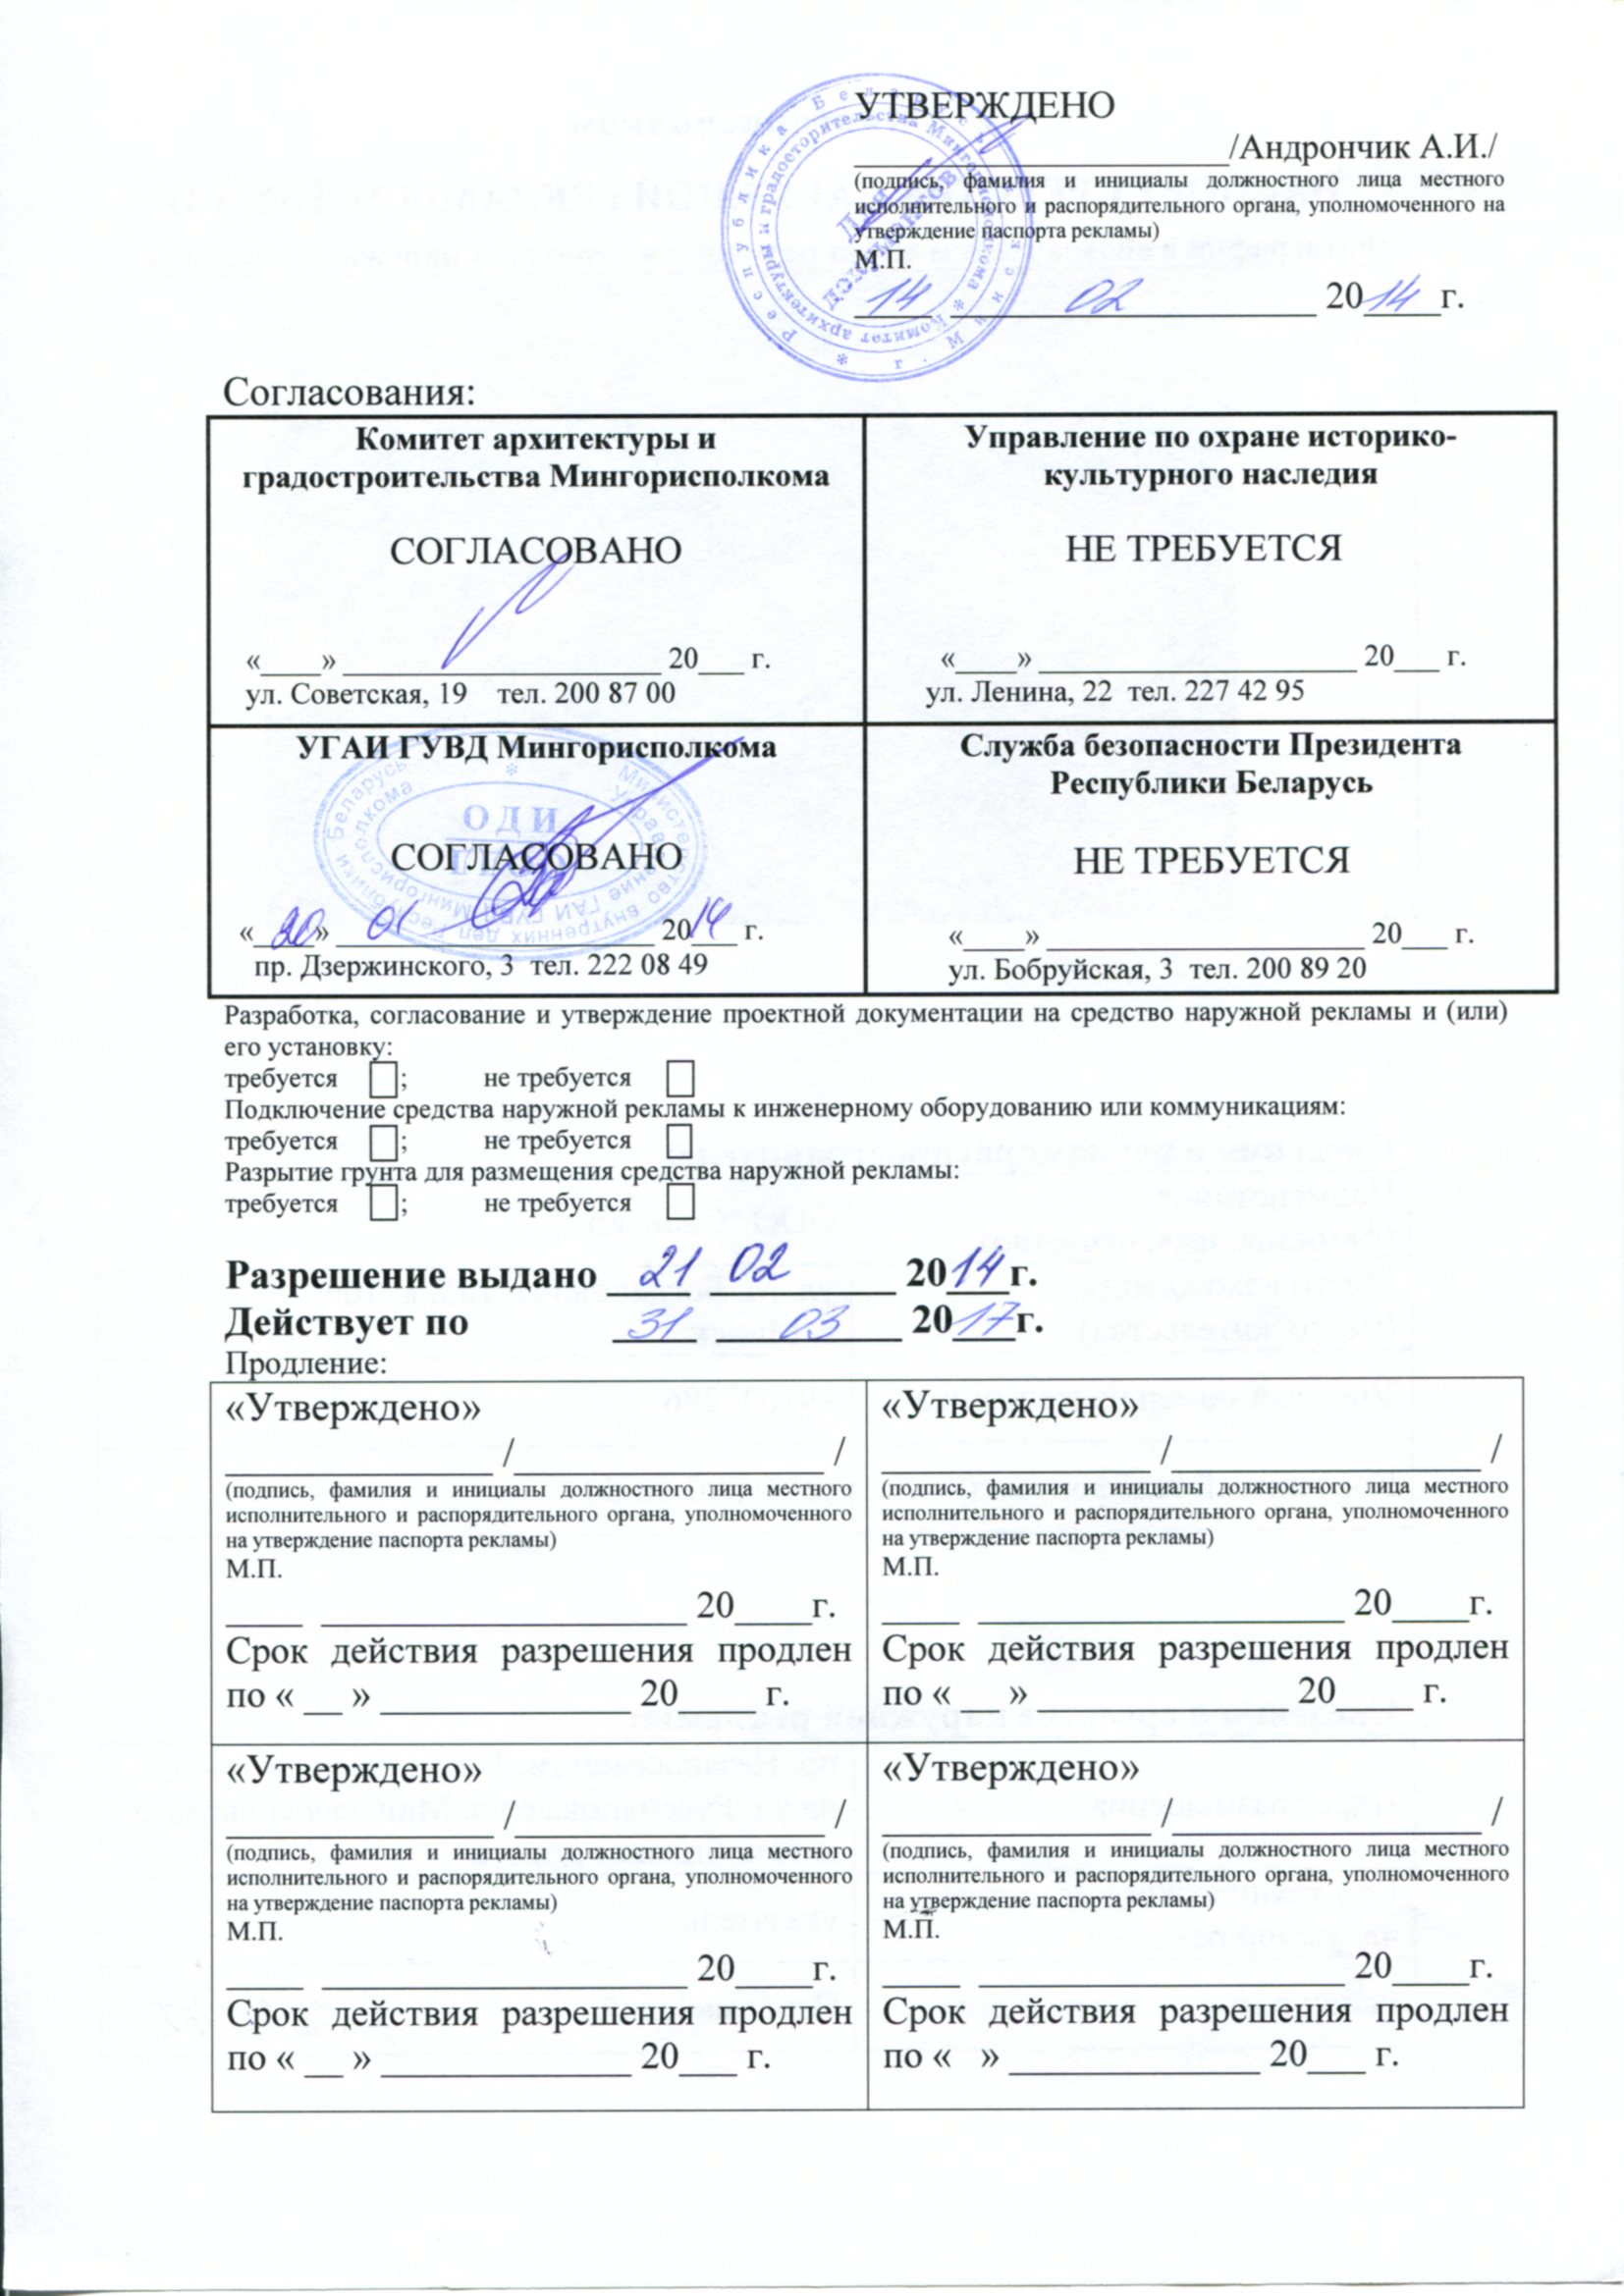 УТВЕРЖДЕНО
/Андрончик А.И./
(подпись, фамилия и инициалы должностного лица местного
исполнительного и распорядительного органа, уполномоченного на
утверждение паспорта рекламы)
М.П.
14 02 2014г.
Республика Беларусь * г. Минск *
Комитет архитектуры и градостроительства Мингорисполкома *
Для документов
Согласования:
Комитет архитектуры и
градостроительства Мингорисполкома
СОГЛАСОВАНО
«____» ____________________ 20___ г.
ул. Советская, 19 тел. 200 87 00
Управление по охране историко-
культурного наследия
НЕ ТРЕБУЕТСЯ
«____» ____________________ 20___ г.
ул. Ленина, 22 тел. 227 42 95
УГАИ ГУВД Мингорисполкома
Министерство внутренних дел Республики Беларусь
Управление ГАИ ГУВД Мингорисполкома
ОДИ
СОГЛАСОВАНО
«20» 01 2014 г.
пр. Дзержинского, 3 тел. 222 08 49
Служба безопасности Президента
Республики Беларусь
НЕ ТРЕБУЕТСЯ
«____» ____________________ 20___ г.
ул. Бобруйская, 3 тел. 200 89 20
Разработка, согласование и утверждение проектной документации на средство наружной рекламы и (или)
его установку:
требуется ; не требуется
Подключение средства наружной рекламы к инженерному оборудованию или коммуникациям:
требуется ; не требуется
Разрытие грунта для размещения средства наружной рекламы:
требуется ; не требуется
Разрешение выдано 21 02 2014г.
Действует по 31 03 2017г.
Продление:
«Утверждено»
______________ /________________ /
(подпись, фамилия и инициалы должностного лица местного
исполнительного и распорядительного органа, уполномоченного
на утверждение паспорта рекламы)
М.П.
____ ___________________ 20____г.
Срок действия разрешения продлен
по « __ » _____________ 20____ г.
«Утверждено»
______________ /________________ /
(подпись, фамилия и инициалы должностного лица местного
исполнительного и распорядительного органа, уполномоченного
на утверждение паспорта рекламы)
М.П.
____ ___________________ 20____г.
Срок действия разрешения продлен
по « __ » _____________ 20____ г.
«Утверждено»
______________ /________________ /
(подпись, фамилия и инициалы должностного лица местного
исполнительного и распорядительного органа, уполномоченного
на утверждение паспорта рекламы)
М.П.
____ ___________________ 20____г.
Срок действия разрешения продлен
по « __ » _____________ 20___ г.
«Утверждено»
______________ /________________ /
(подпись, фамилия и инициалы должностного лица местного
исполнительного и распорядительного органа, уполномоченного
на утверждение паспорта рекламы)
М.П.
____ ___________________ 20____г.
Срок действия разрешения продлен
по « » _____________ 20___ г.